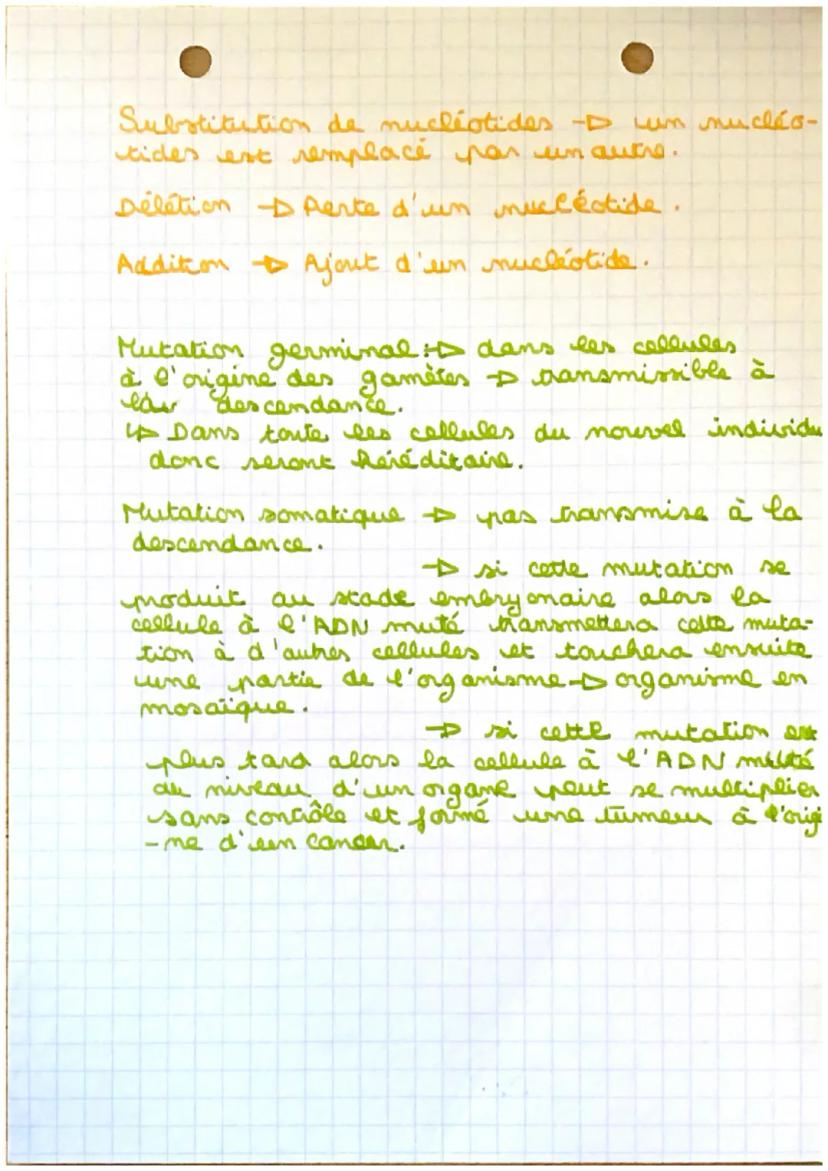 Substitution de nucléotides → un nucléo-
tides est remplacé par un autre.
Délétion → Perte d'un nucléotide.
Addition → Ajout d'un nucléotide.
Mutation germinal :→ dans les cellules
à l'origine des gamètes → transmissible à
leur descendance.
↳ Dans toute les cellules du nouvel individu
donc seront héréditaire.
Mutation somatique → pas transmise à la
descendance.
→ si cette mutation se
produit au stade embryonaire alors la
cellule à l'ADN muté transmettera cette muta-
tion à d'autres cellules et touchera ensuite
une partie de l'organisme → organisme en
mosaïque.
→ si cette mutation est
plus tard alors la cellule à l'ADN muté
au niveau d'un organe peut se multiplier
sans contrôle et formé une tumeur à l'origi
-ne d'un cancer.